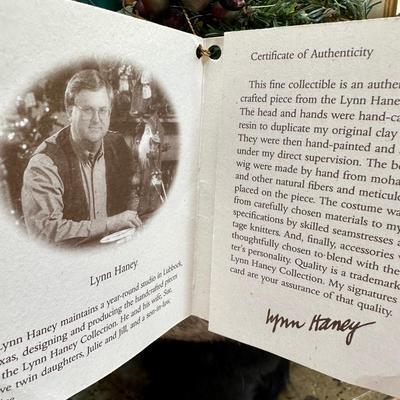 Lynn Haney
Lynn Haney maintains a year-round studio in Lubbock,
designing and producing the handcrafted pieces
the Lynn Haney Collection. He and his wife, Sue,
twin daughters, Julie and Jill, and a son-in-law,
Certificate of Authenticity
This fine collectible is an authen
crafted piece from the Lynn Haney
The head and hands were hand-ca
resin to duplicate my original clay
They were then hand-painted and
under my direct supervision. The be
wig were made by hand from moha
and other natural fibers and meticul
placed on the piece. The costume wa
from carefully chosen materials to my
specifications by skilled seamstresses a
tage knitters. And, finally, accessories
thoughtfully chosen to blend with the
ter's personality. Quality is a trademark
Lynn Haney Collection. My signatures
card are your assurance of that quality.
Lynn Haney